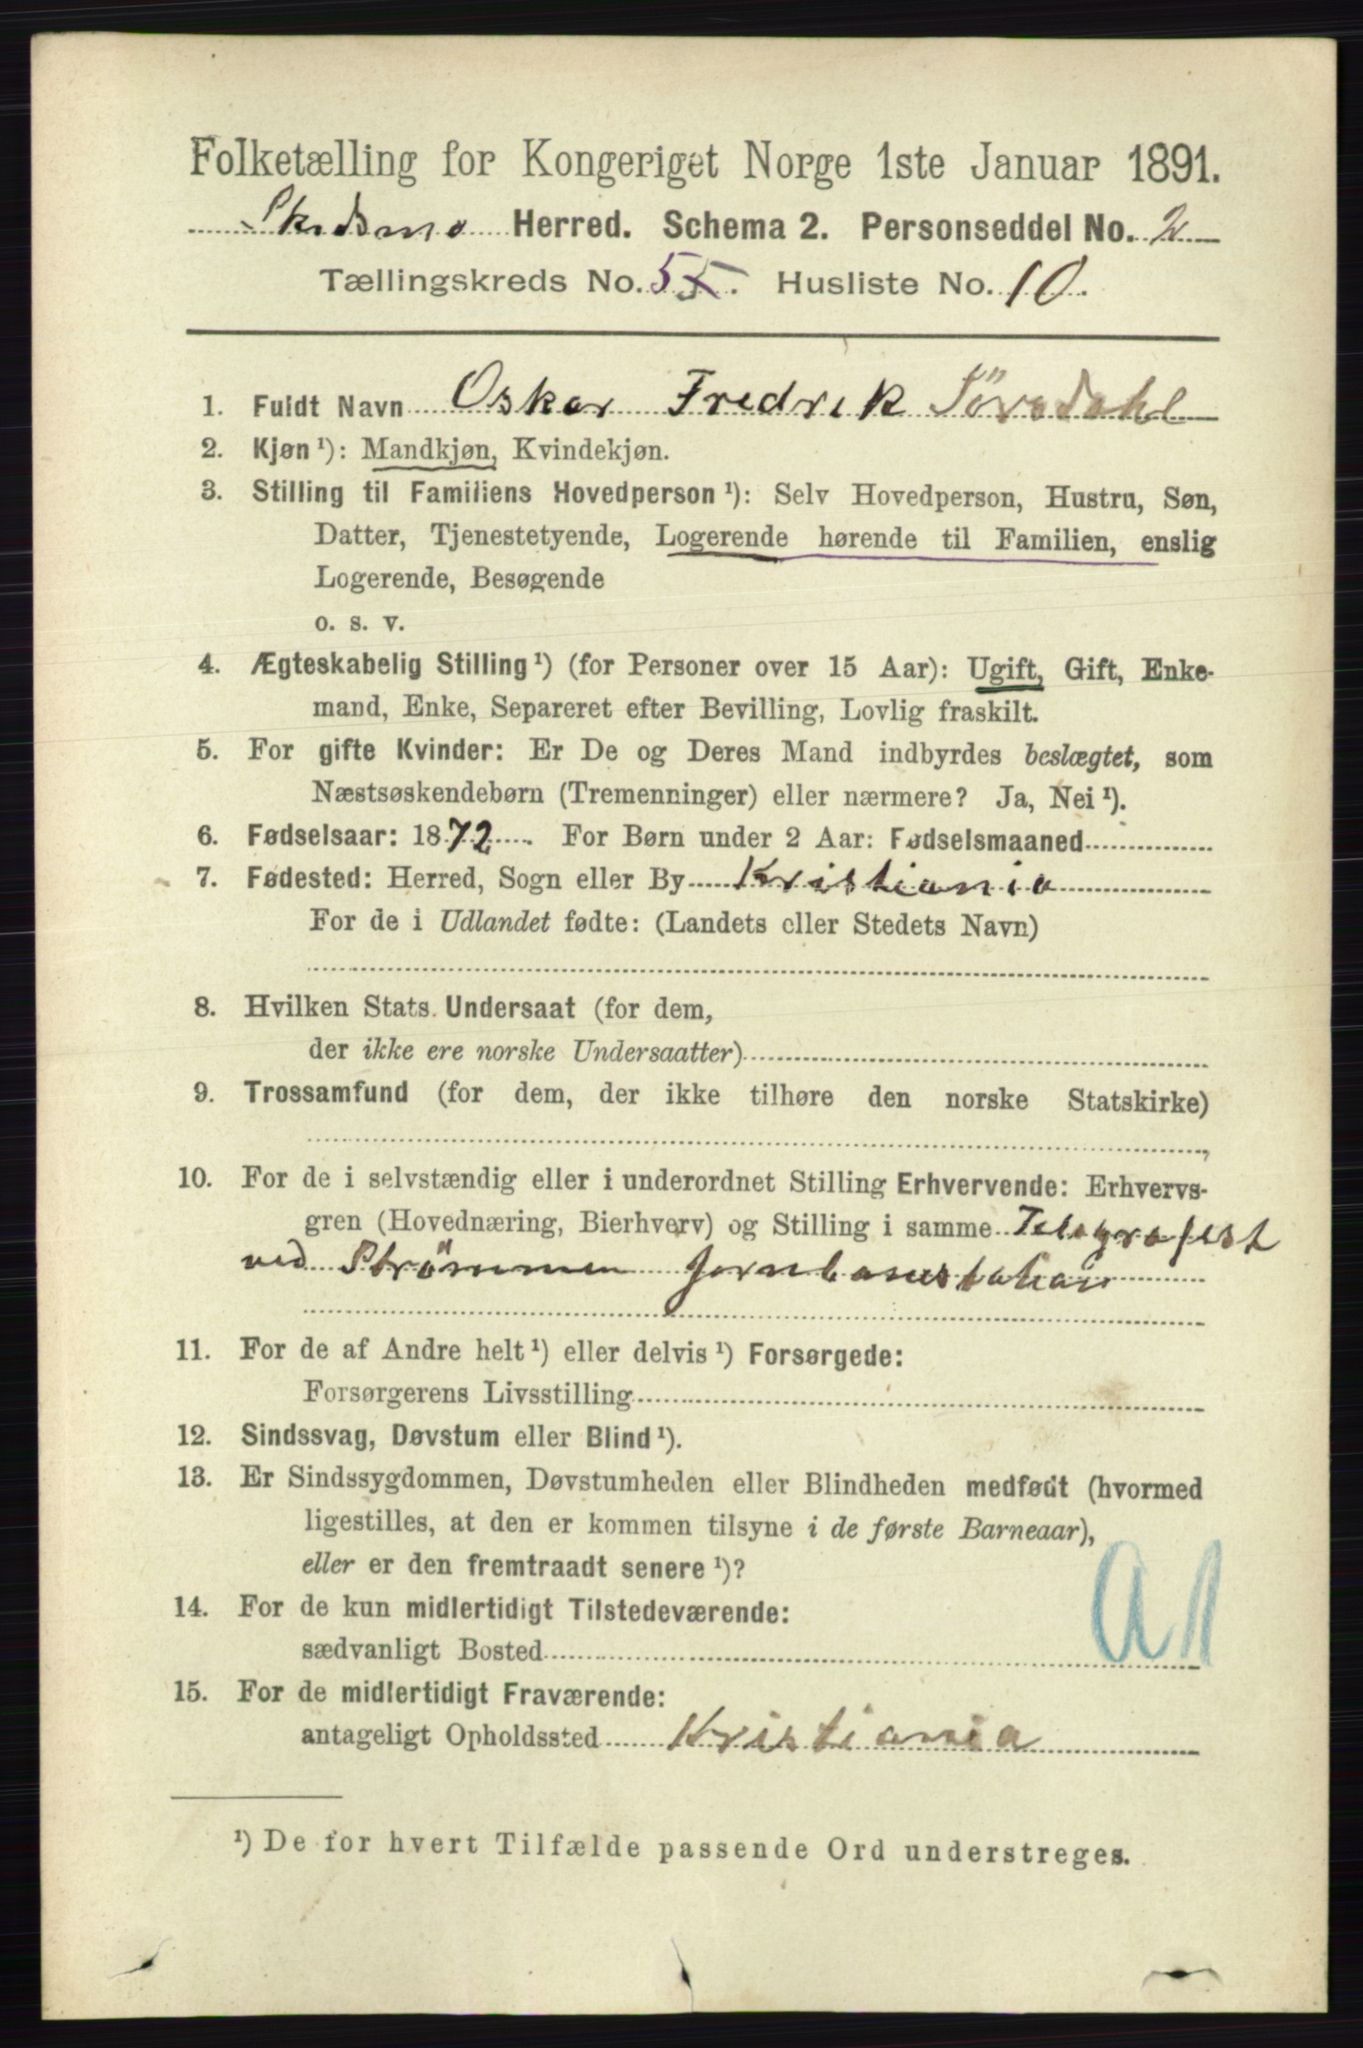 Folketælling for Kongeriget Norge 1ste Januar 1891.
Skedsmo Herred. Schema 2. Personseddel No. 2
Tællingskreds No. 5 5. Husliste No. 10.
1. Fuldt Navn Oskar Fredrik Sörsdahl
2. Kjøn ¹): Mandkjøn, Kvindekjøn.
3. Stilling til Familiens Hovedperson ¹): Selv Hovedperson, Hustru, Søn,
Datter, Tjenestetyende, Logerende hørende til Familien, enslig
Logerende, Besøgende
o. s. v.
4. Ægteskabelig Stilling ¹) (for Personer over 15 Aar): Ugift, Gift, Enke-
mand, Enke, Separeret efter Bevilling, Lovlig fraskilt.
5. For gifte Kvinder: Er De og Deres Mand indbyrdes beslægtet, som
Næstsøskendebørn (Tremenninger) eller nærmere? Ja, Nei ¹).
6. Fødselsaar: 1872. For Børn under 2 Aar: Fødselsmaaned
7. Fødested: Herred, Sogn eller By Kristiania
For de i Udlandet fødte: (Landets eller Stedets Navn)
8. Hvilken Stats Undersaat (for dem,
der ikke ere norske Undersaatter)
9. Trossamfund (for dem, der ikke tilhøre den norske Statskirke)
10. For de i selvstændig eller i underordnet Stilling Erhvervende: Erhvervs-
gren (Hovednæring, Bierhverv) og Stilling i samme Telegrafist
ved Strömmen Jernbanestation
11. For de af Andre helt ¹) eller delvis ¹) Forsørgede:
Forsørgerens Livsstilling
12. Sindssvag, Døvstum eller Blind ¹).
13. Er Sindssygdommen, Døvstumheden eller Blindheden medfødt (hvormed
ligestilles, at den er kommen tilsyne i de første Barneaar),
eller er den fremtraadt senere ¹)?
14. For de kun midlertidigt Tilstedeværende:
sædvanligt Bosted
a 1
15. For de midlertidigt Fraværende:
antageligt Opholdssted Kristiania
¹) De for hvert Tilfælde passende Ord understreges.